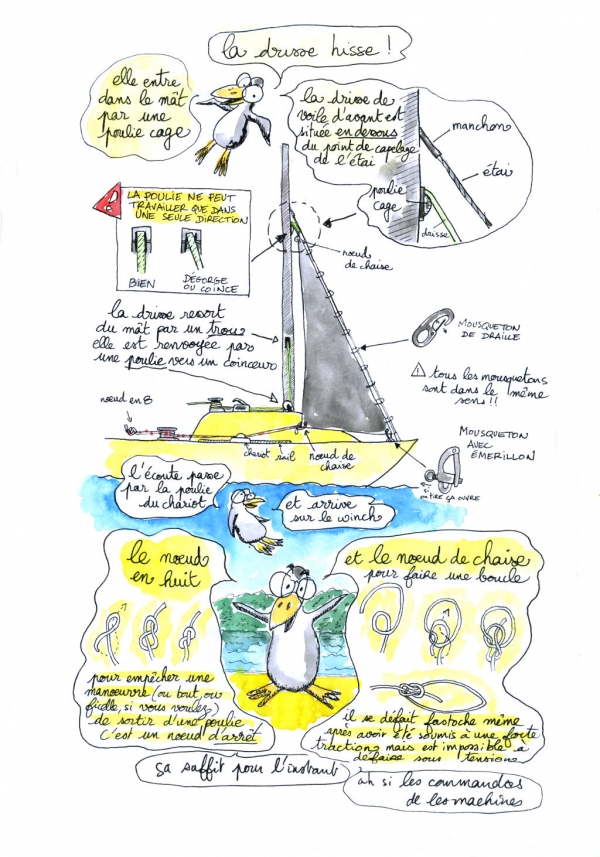 la drisse hisse !
elle entre
dans le mât
par une
poulie cage
la drisse de
voile d'avant est
située en dessous
du point de capelage
de l'étai
manchon
étai
poulie
cage
drisse
LA POULIE NE PEUT
TRAVAILLER QUE DANS
UNE SEULE DIRECTION
BIEN
DÉGORGE
OU COINCE
noeud
de chaise
la drisse ressort
du mât par un trou
elle est renvoyée par
une poulie vers un coinceur
MOUSQUETON
DE DRAILLE
! tous les mousquetons
sont dans le même
sens !!
noeud en 8
chariot
rail
noeud de
chaise
MOUSQUETON
AVEC
ÉMERILLON
SI
ON TIRE ÇA OUVRE
l'écoute passe
par la poulie
du chariot
et arrive
sur le winch
le noeud
en huit
et le noeud de chaise
pour faire une boucle
pour empêcher une
manoeuvre (ou bout, ou
ficelle, si vous voulez)
de sortir d'une poulie
c'est un noeud d'arrêt
il se défait fastoche même
après avoir été soumis à une forte
traction mais est impossible à
défaire sous tension
ça suffit pour l'instant
ah si les commandos
de les machines